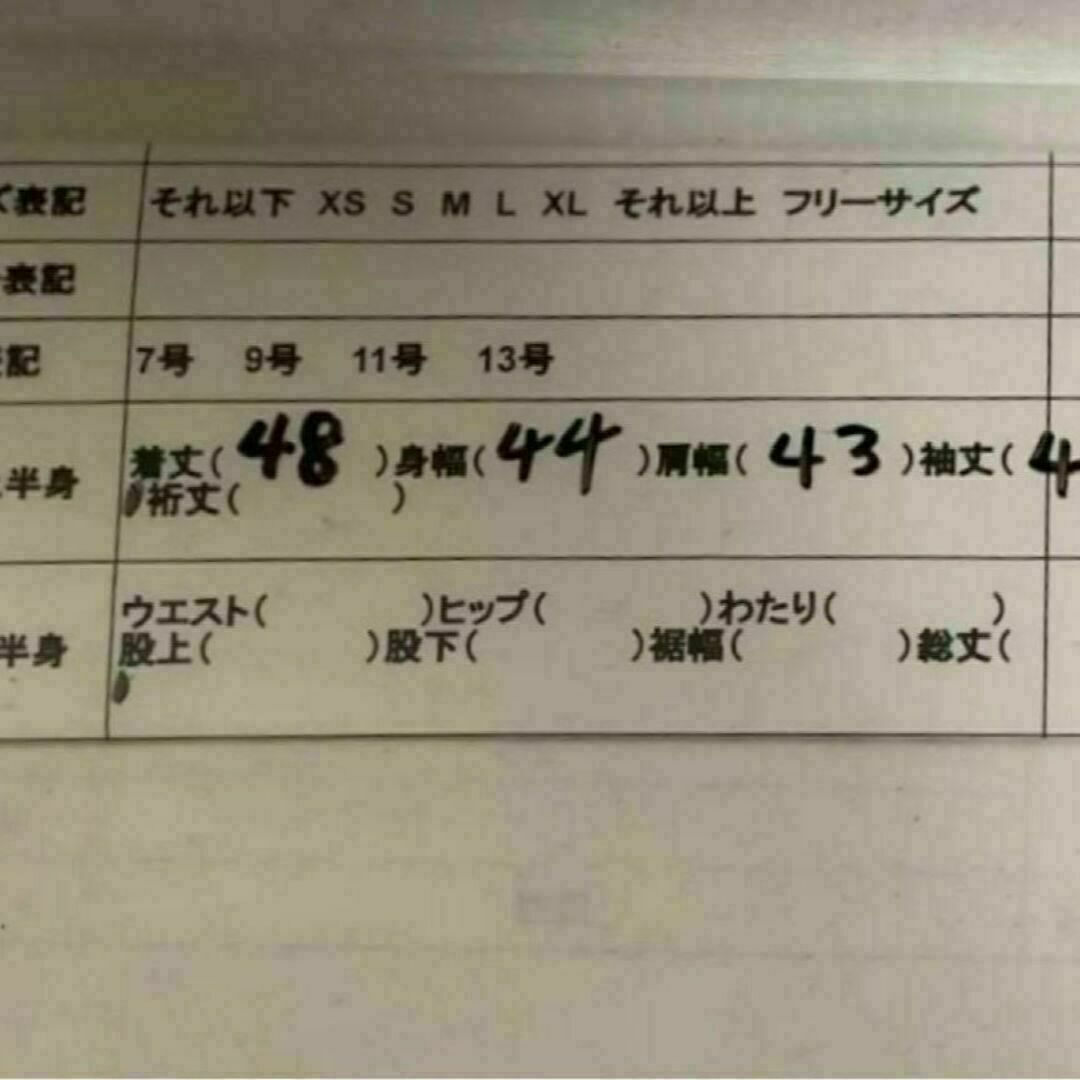 ズ表記 それ以下 XS S M L XL それ以上 フリーサイズ
表記
記 7号 9号 11号 13号
半身 着丈(48)身幅(44)肩幅(43)袖丈(4
裄丈( )
半身 ウエスト( )ヒップ( )わたり( )
股上( )股下( )裾幅( )総丈(